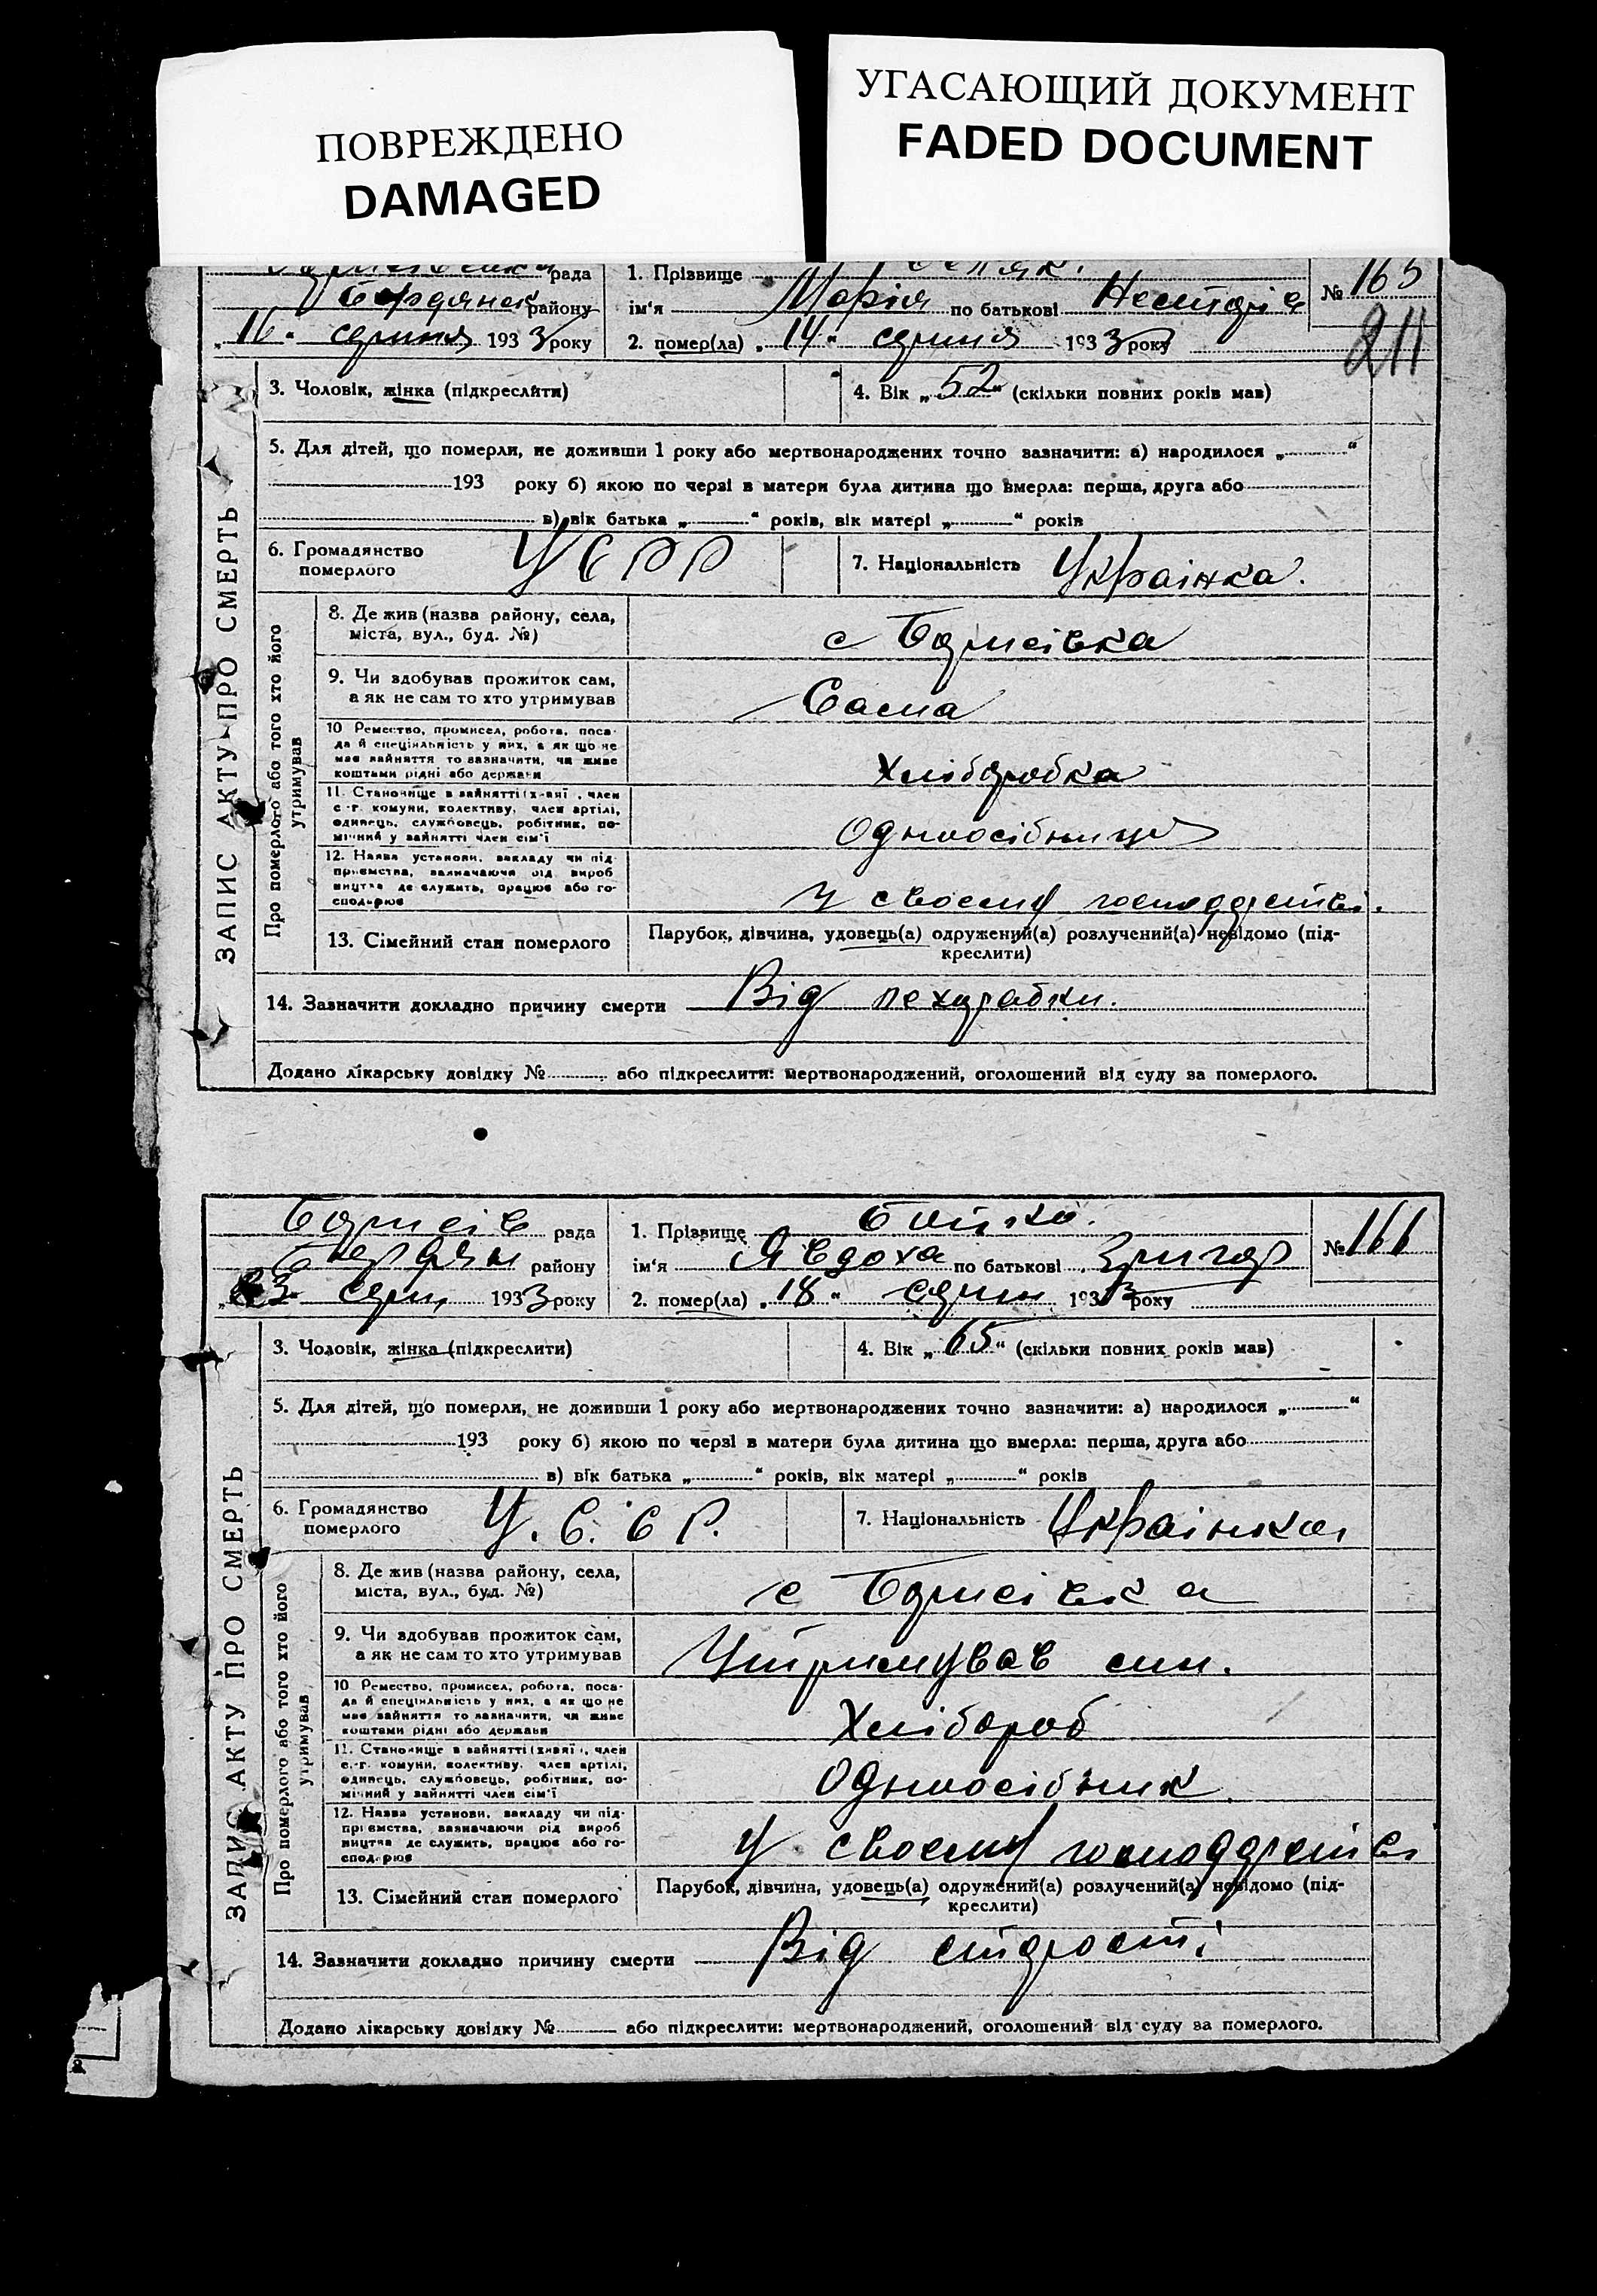 ПОВРЕЖДЕНО
DAMAGED
УГАСАЮЩИЙ ДОКУМЕНТ
FADED DOCUMENT
рада
1. Прізвище
№ 165
Бердянськ району
ім'я Марія по батькові Несторів
211
„16" серпня 1933 року
2. помер(ла) „14" серпня 1933 року
ЗАПИС АКТУ ПРО СМЕРТЬ
3. Чоловік, жінка (підкреслити)
4. Вік „52" (скільки повних років мав)
5. Для дітей, що померли, не доживши 1 року або мертвонароджених точно зазначити: а) народилося „ "
193 року б) якою по черзі в матери була дитина що вмерла: перша, друга або
в) вік батька „ " років, вік матері „ " років
6. Громадянство
померлого
УСРР
7. Національність Українка.
Про померлого або того хто його
утримував
8. Де жив (назва району, села,
міста, вул., буд. №)
с Борисівка
9. Чи здобував прожиток сам,
а як не сам то хто утримував
Сама
10 Ремество, промисел, робота, поса-
да й спеціяльність у них, а як що не
має зайняття то зазначити, чи живе
коштами рідні або держави
Хліборобка
11. Становище в зайнятті (хазяї, член
с.-г. комуни, колективу, член артілі,
одинець, службовець, робітник, по-
мічний у зайнятті член сім'ї
Одноосібниця
12. Назва установи, закладу чи під-
приємства, зазначаючи рід вироб
ництва де служить, працює або го-
сподарює
у своєму господарстві.
13. Сімейний стан померлого
Парубок, дівчина, удовець(а) одружений(а) розлучений(а) невідомо (під-
креслити)
14. Зазначити докладно причину смерти Від
Додано лікарську довідку № або підкреслити: мертвонароджений, оголошений від суду за померлого.
Борисів рада
1. Прізвище Бойко.
№ 166
Бердян району
ім'я Явдоха по батькові Григор
23 серп 1933 року
2. помер(ла) „18" серпн 1933 року
ЗАПИС АКТУ ПРО СМЕРТЬ
3. Чоловік, жінка (підкреслити)
4. Вік „65" (скільки повних років мав)
5. Для дітей, що померли, не доживши 1 року або мертвонароджених точно зазначити: а) народилося „ "
193 року б) якою по черзі в матери була дитина що вмерла: перша, друга або
в) вік батька „ " років, вік матері „ " років
6. Громадянство
померлого
У. С. С Р.
7. Національність Українка
Про померлого або того хто його
утримував
8. Де жив (назва району, села,
міста, вул., буд. №)
с Борисівка
9. Чи здобував прожиток сам,
а як не сам то хто утримував
Утримував син.
10 Ремество, промисел, робота, поса-
да й спеціяльність у них, а як що не
має зайняття то зазначити, чи живе
коштами рідні або держави
Хлібороб
11. Становище в зайнятті (хазяї, член
с.-г. комуни, колективу, член артілі,
одинець, службовець, робітник, по-
мічний у зайнятті член сім'ї
Одноосібник
12. Назва установи, закладу чи під-
приємства, зазначаючи рід вироб
ництва де служить, працює або го-
сподарює
У своєму господарстві
13. Сімейний стан померлого
Парубок, дівчина, удовець(а) одружений(а) розлучений(а) невідомо (під-
креслити)
14. Зазначити докладно причину смерти Від старости
Додано лікарську довідку № або підкреслити: мертвонароджений, оголошений від суду за померлого.